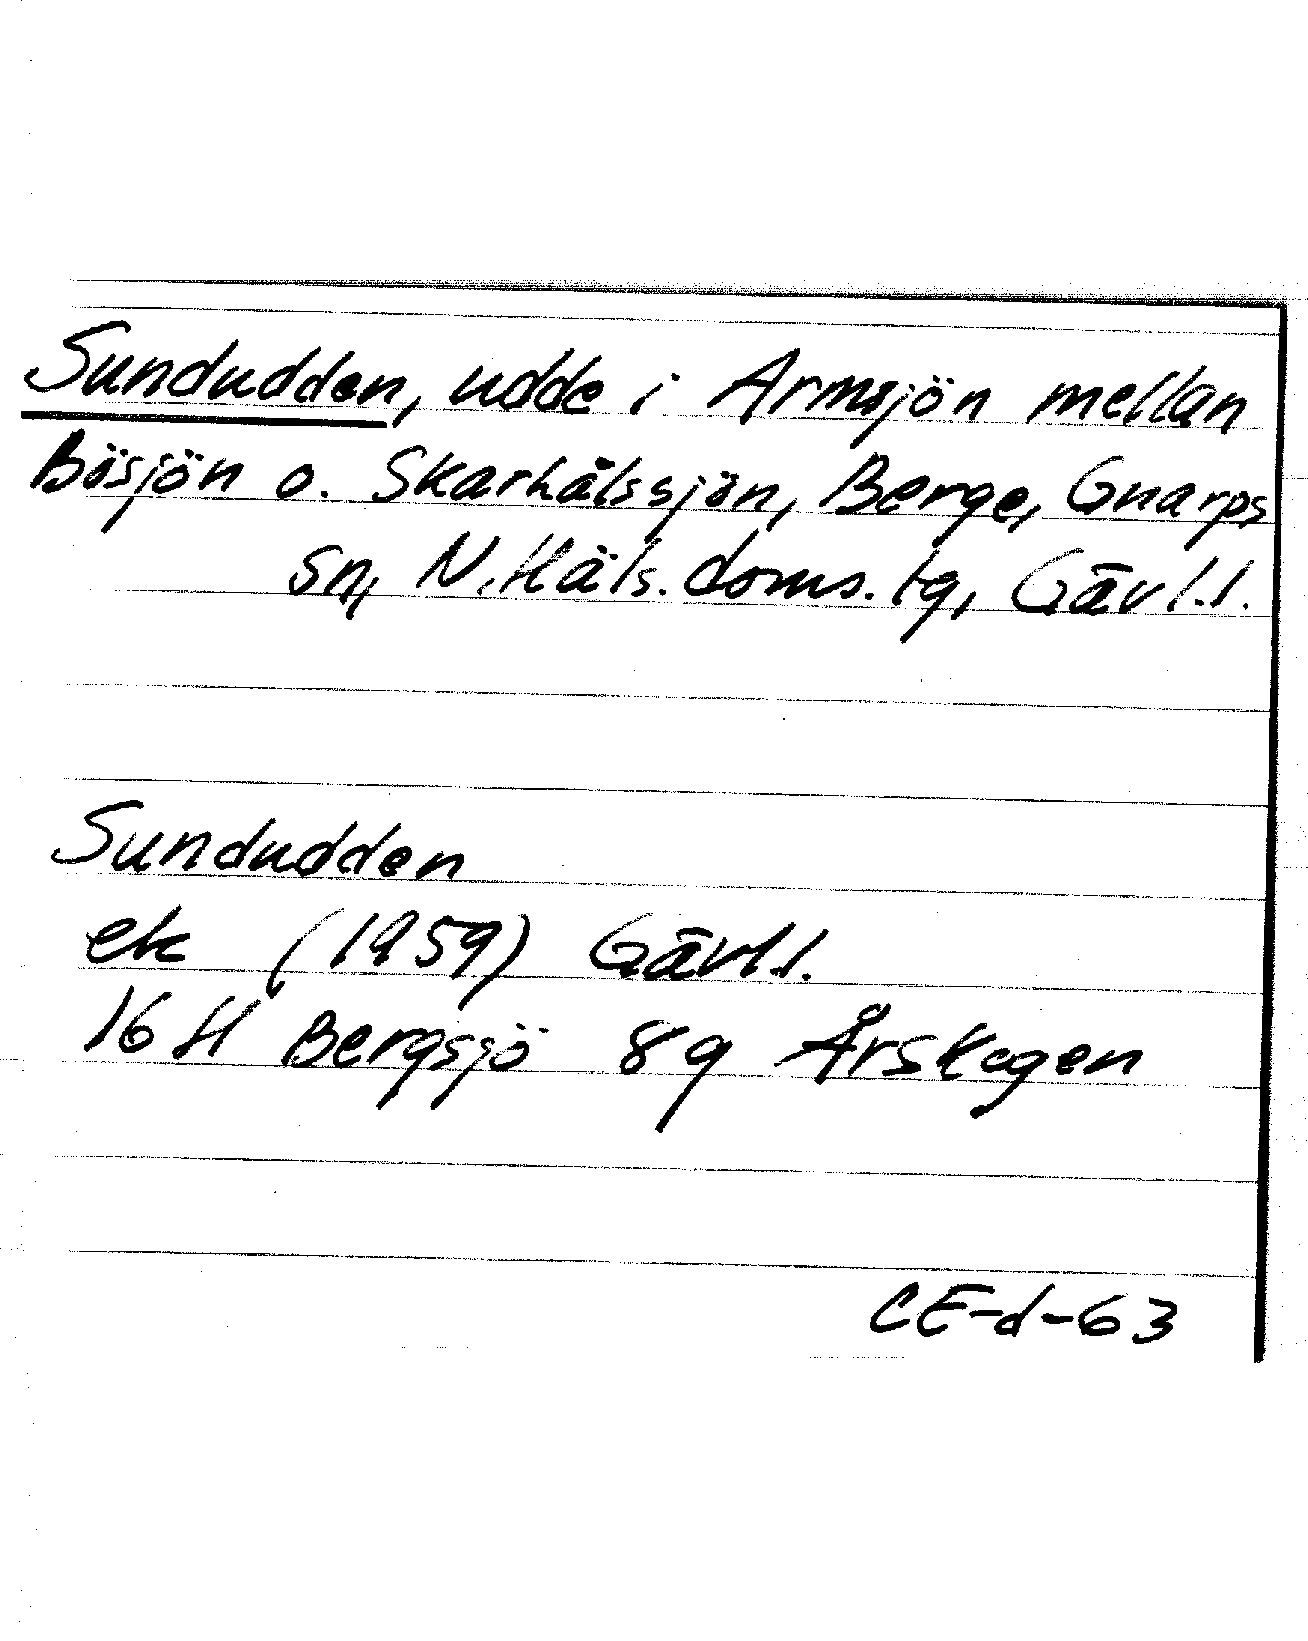 Sundudden, udde i Armsjön mellan
Bösjön o. Skarhålssjön, Berge, Gnarps
sn, N. Häls. doms. tg, Gävl.l.
Sundudden
ek (1959) Gävl.l.
16 H Bergsjö 8 g Årskogen
CE-d-63